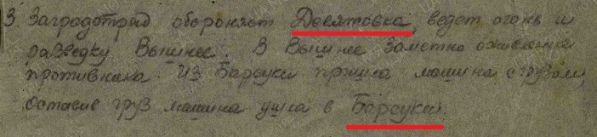 3. Заградотряд обороняет Десятовка, ведет огонь и
разведку Вышнее. В Вышнее заметно оживление
противника. Из Барсуки пришла машина с грузом,
оставив груз машина ушла в Барсуки.